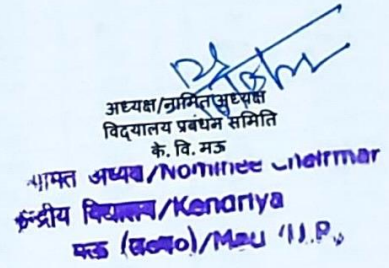 अध्यक्ष/नामित अध्यक्ष
विद्यालय प्रबंधन समिति
के. वि. मऊ
अध्यक्ष/Nominee Chairman
केन्द्रीय विद्यालय/Kendriya
मऊ (उ०प्र०)/Mau U.P.